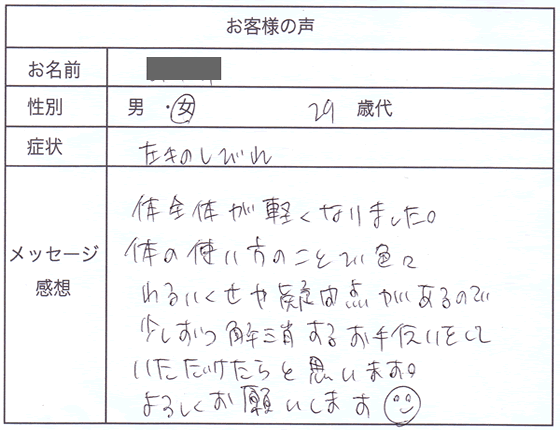 お客様の声
お名前
性別 男 ・ 女 29 歳代
症状 左手のしびれ
メッセージ
感想
体全体が軽くなりました。
体の使い方のことで色々
わるいくせや疑問点があるので
少しずつ解消するお手伝いをして
いただけたらと思います。
よろしくお願いします